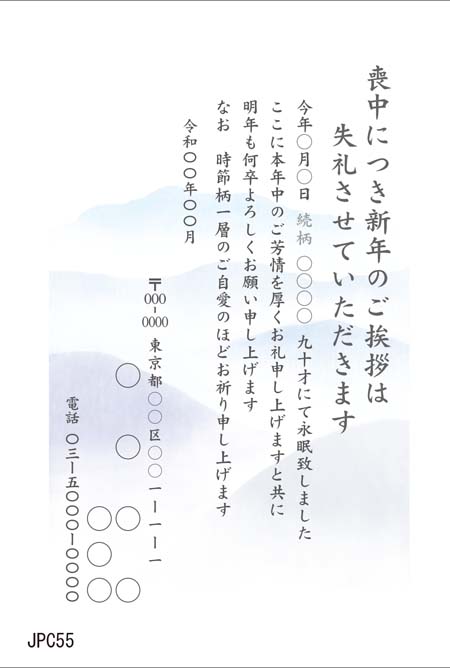 喪中につき新年のご挨拶は
失礼させていただきます
今年〇月〇日 続柄 〇〇〇〇 九十才にて永眠致しました
ここに本年中のご芳情を厚くお礼申し上げますと共に
明年も何卒よろしくお願い申し上げます
なお 時節柄一層のご自愛のほどお祈り申し上げます
令和〇〇年〇〇月
〒000-0000 東京都〇〇区〇〇一ー一ー一
〇 〇 〇 〇
〇 〇 〇
電話 〇三ー五〇〇〇ー〇〇〇〇
JPC55